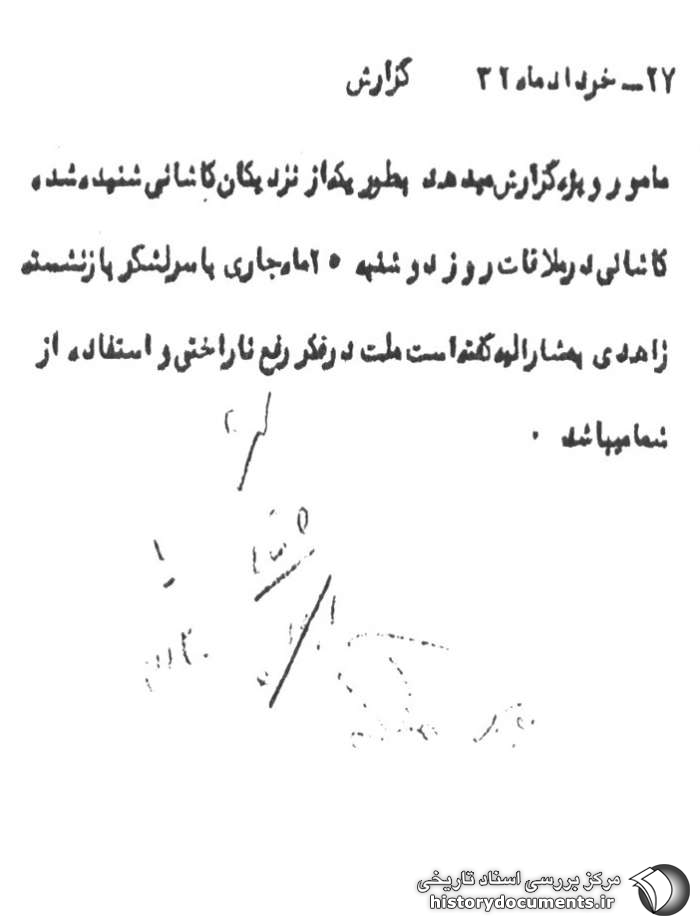 ۲۷ــ خرداد ماه ۳۲ گزارش
مامور ویژه گزارش میدهد بطوریکه از نزدیکان کاشانی شنیده شده
کاشانی در ملاقات روز دوشنبه ۲۵ ماه جاری با سرلشکر بازنشسته
زاهدی بمشارالیه گفته است ملت در فکر رفع ناراحتی و استفاده از
شما میباشد .
مرکز بررسی اسناد تاریخی
historydocuments.ir